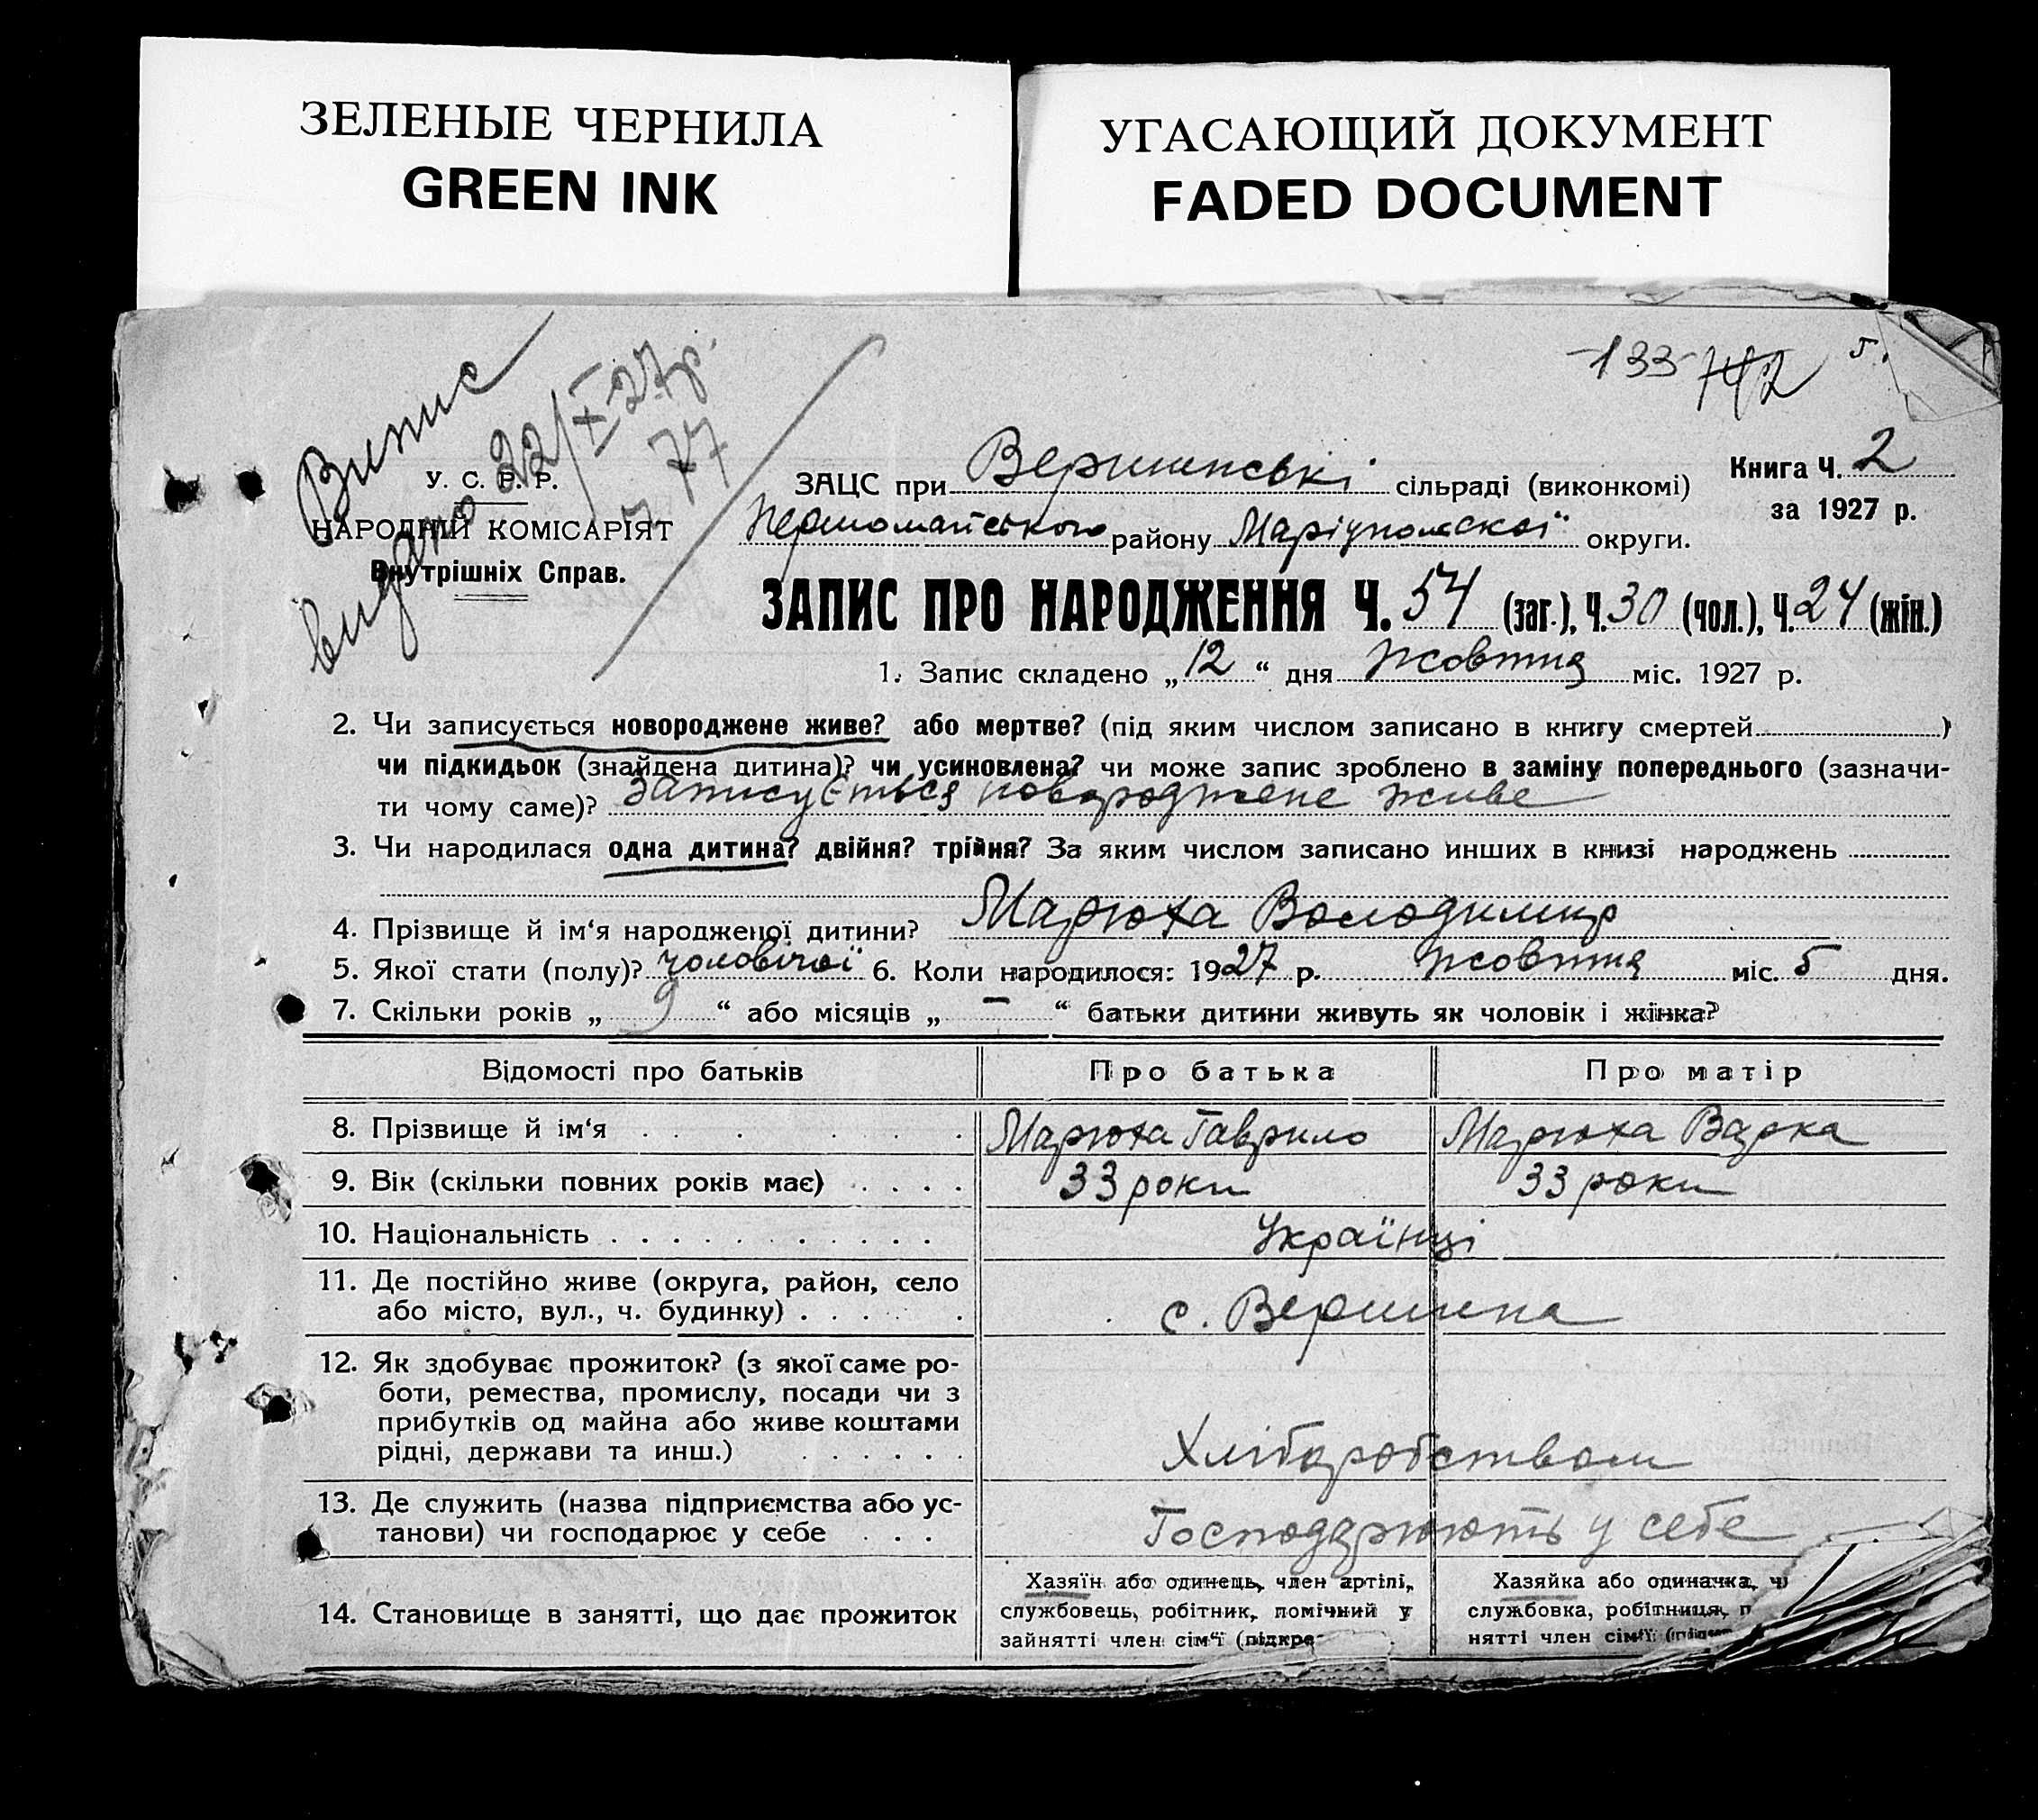 ЗЕЛЕНЫЕ ЧЕРНИЛА
GREEN INK
УГАСАЮЩИЙ ДОКУМЕНТ
FADED DOCUMENT
-133- 742
Випис
видано 22/X 27р.
77
У. С. Р. Р.
НАРОДНІЙ КОМІСАРІЯТ
Внутрішніх Справ.
ЗАЦС при Вершинські сільраді (виконкомі)
Книга Ч. 2
за 1927 р.
Першомайського району Маріупольскої округи.
ЗАПИС ПРО НАРОДЖЕННЯ Ч. 54 (заг.), Ч. 30 (чол.), Ч. 24 (жін.)
1. Запис складено „12“ дня Жовтня міс. 1927 р.
2. Чи записується новороджене живе? або мертве? (під яким числом записано в книгу смертей )
чи підкидьок (знайдена дитина)? чи усиновлена? чи може запис зроблено в заміну попереднього (зазначи-
ти чому саме)? Записується новороджене живе
3. Чи народилася одна дитина? двійня? трійня? За яким числом записано инших в книзі народжень
4. Прізвище й ім‘я народженої дитини? Марюха Володимир
5. Якої стати (полу)? чоловічої 6. Коли народилося: 1927 р. Жовтня міс. 5 дня.
7. Скільки років „ 9 “ або місяців „ – “ батьки дитини живуть як чоловік і жінка?
Відомості про батьків Про батька Про матір
8. Прізвище й ім‘я Марюха Гаврило Марюха Варка
9. Вік (скільки повних років має) 33 роки 33 роки
10. Національність Українці
11. Де постійно живе (округа, район, село
або місто, вул., ч. будинку) с. Вершина
12. Як здобуває прожиток? (з якої саме ро-
боти, ремества, промислу, посади чи з
прибутків од майна або живе коштами
рідні, держави та инш.) Хліборобством
13. Де служить (назва підприємства або ус-
танови) чи господарює у себе Господарюють у себе
14. Становище в занятті, що дає прожиток
Хазяїн або одинець, член артілі,
службовець, робітник, помічний у
зайнятті член сім‘ї (підкре
Хазяйка або одиначка, ч
службовка, робітниця, п
нятті член сім‘ї